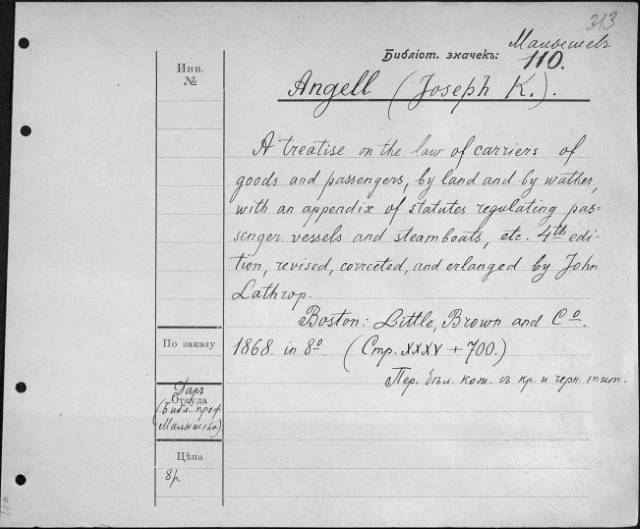 313
Малышевъ
Библіот. значекъ: 110.
Инв. №
Angell (Joseph K.).
A treatise on the law of carriers of
goods and passengers, by land and by wather,
with an appendix of statutes regulating pas=
senger vessels and steamboats, etc. 4th edi-
tion, revised, corrected, and erlanged by John
Lathrop.
Boston: Little, Brown and Co.
По заказу
1868. in 8o (Стр. XXXV + 700.)
Пер. бѣл. кож. съ кр. и черн. тит.
Даръ
Откуда
(Библ. проф.
Малышева)
Цѣна
8р.